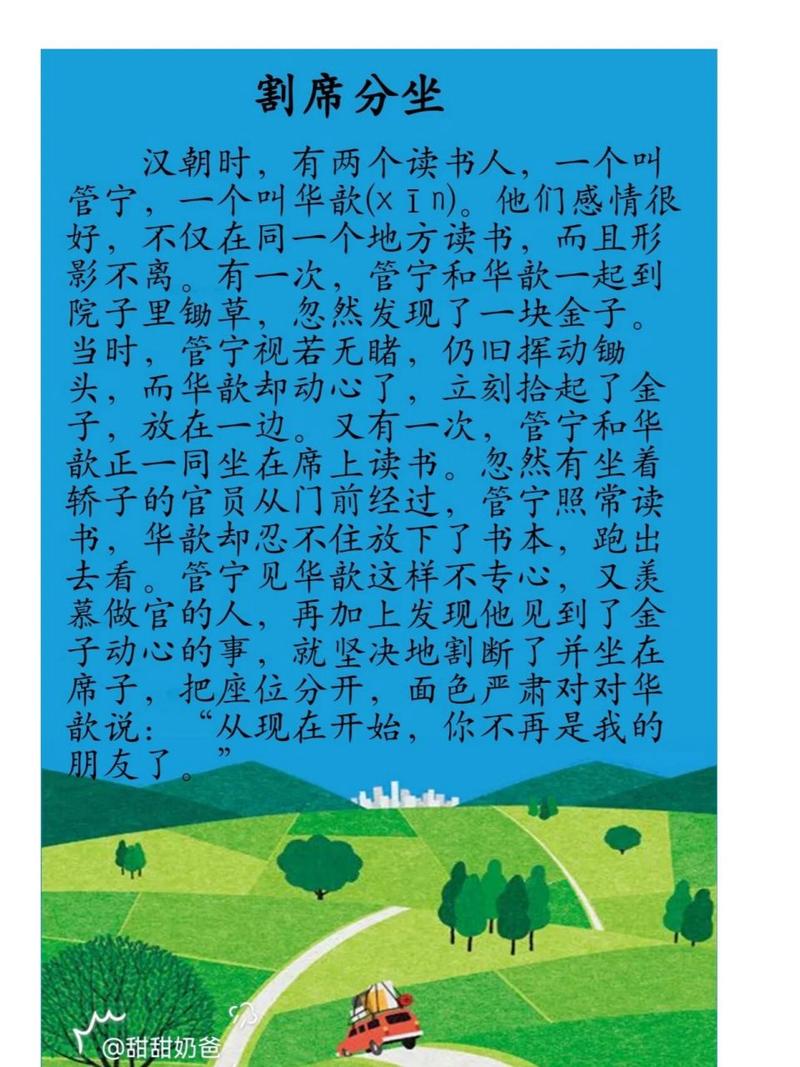 割席分坐
汉朝时，有两个读书人，一个叫
管宁，一个叫华歆(xīn)。他们感情很
好，不仅在同一个地方读书，而且形
影不离。有一次，管宁和华歆一起到
院子里锄草，忽然发现了一块金子。
当时，管宁视若无睹，仍旧挥动锄
头，而华歆却动心了，立刻拾起了金
子，放在一边。又有一次，管宁和华
歆正一同坐在席上读书。忽然有坐着
轿子的官员从门前经过，管宁照常读
书，华歆却忍不住放下了书本，跑出
去看。管宁见华歆这样不专心，又羡
慕做官的人，再加上发现他见到了金
子动心的事，就坚决地割断了并坐在
席子，把座位分开，面色严肃对对华
歆说：“从现在开始，你不再是我的
朋友了。”
@甜甜奶爸